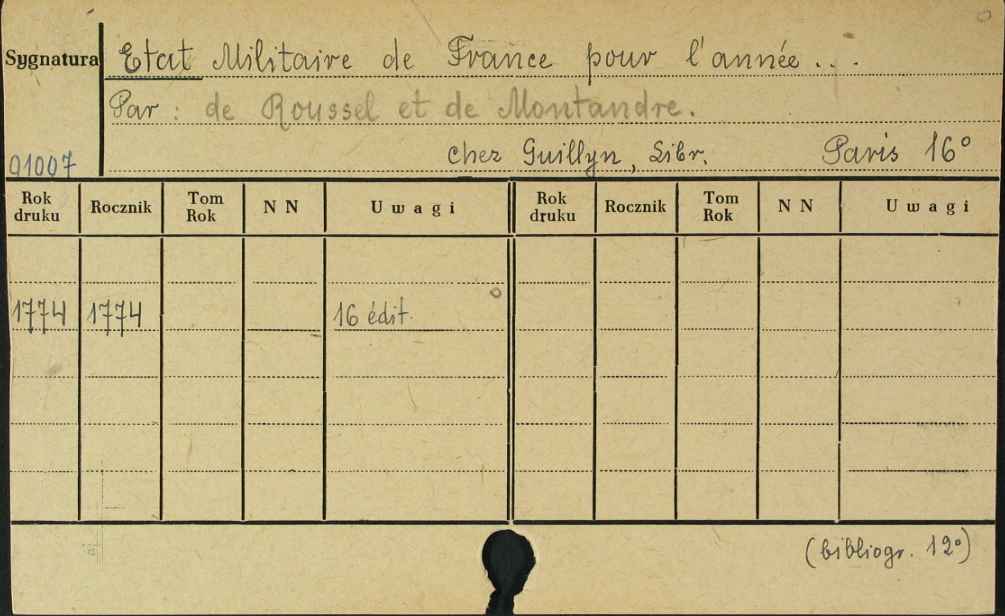 Sygnatura
Etat Militaire de France pour l'année...
Par : de Roussel et de Montandre.
91007
chez Guillyn, Libr. Paris 16°
Rok druku Rocznik Tom Rok N N Uwagi Rok druku Rocznik Tom Rok N N Uwagi
1774 1774 16 édit.
(bibliogr. 12°)